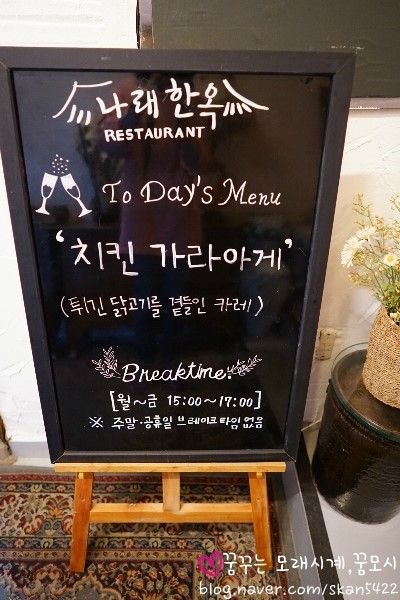 나래한옥
RESTAURANT
To Day's Menu
'치킨 가라아게'
(튀긴 닭고기를 곁들인 카레)
Breaktime.
[월~금 15:00~17:00]
※ 주말·공휴일 브레이크타임 없음
꿈꾸는 모래시계,꿈모시
blog.naver.com/skan5422